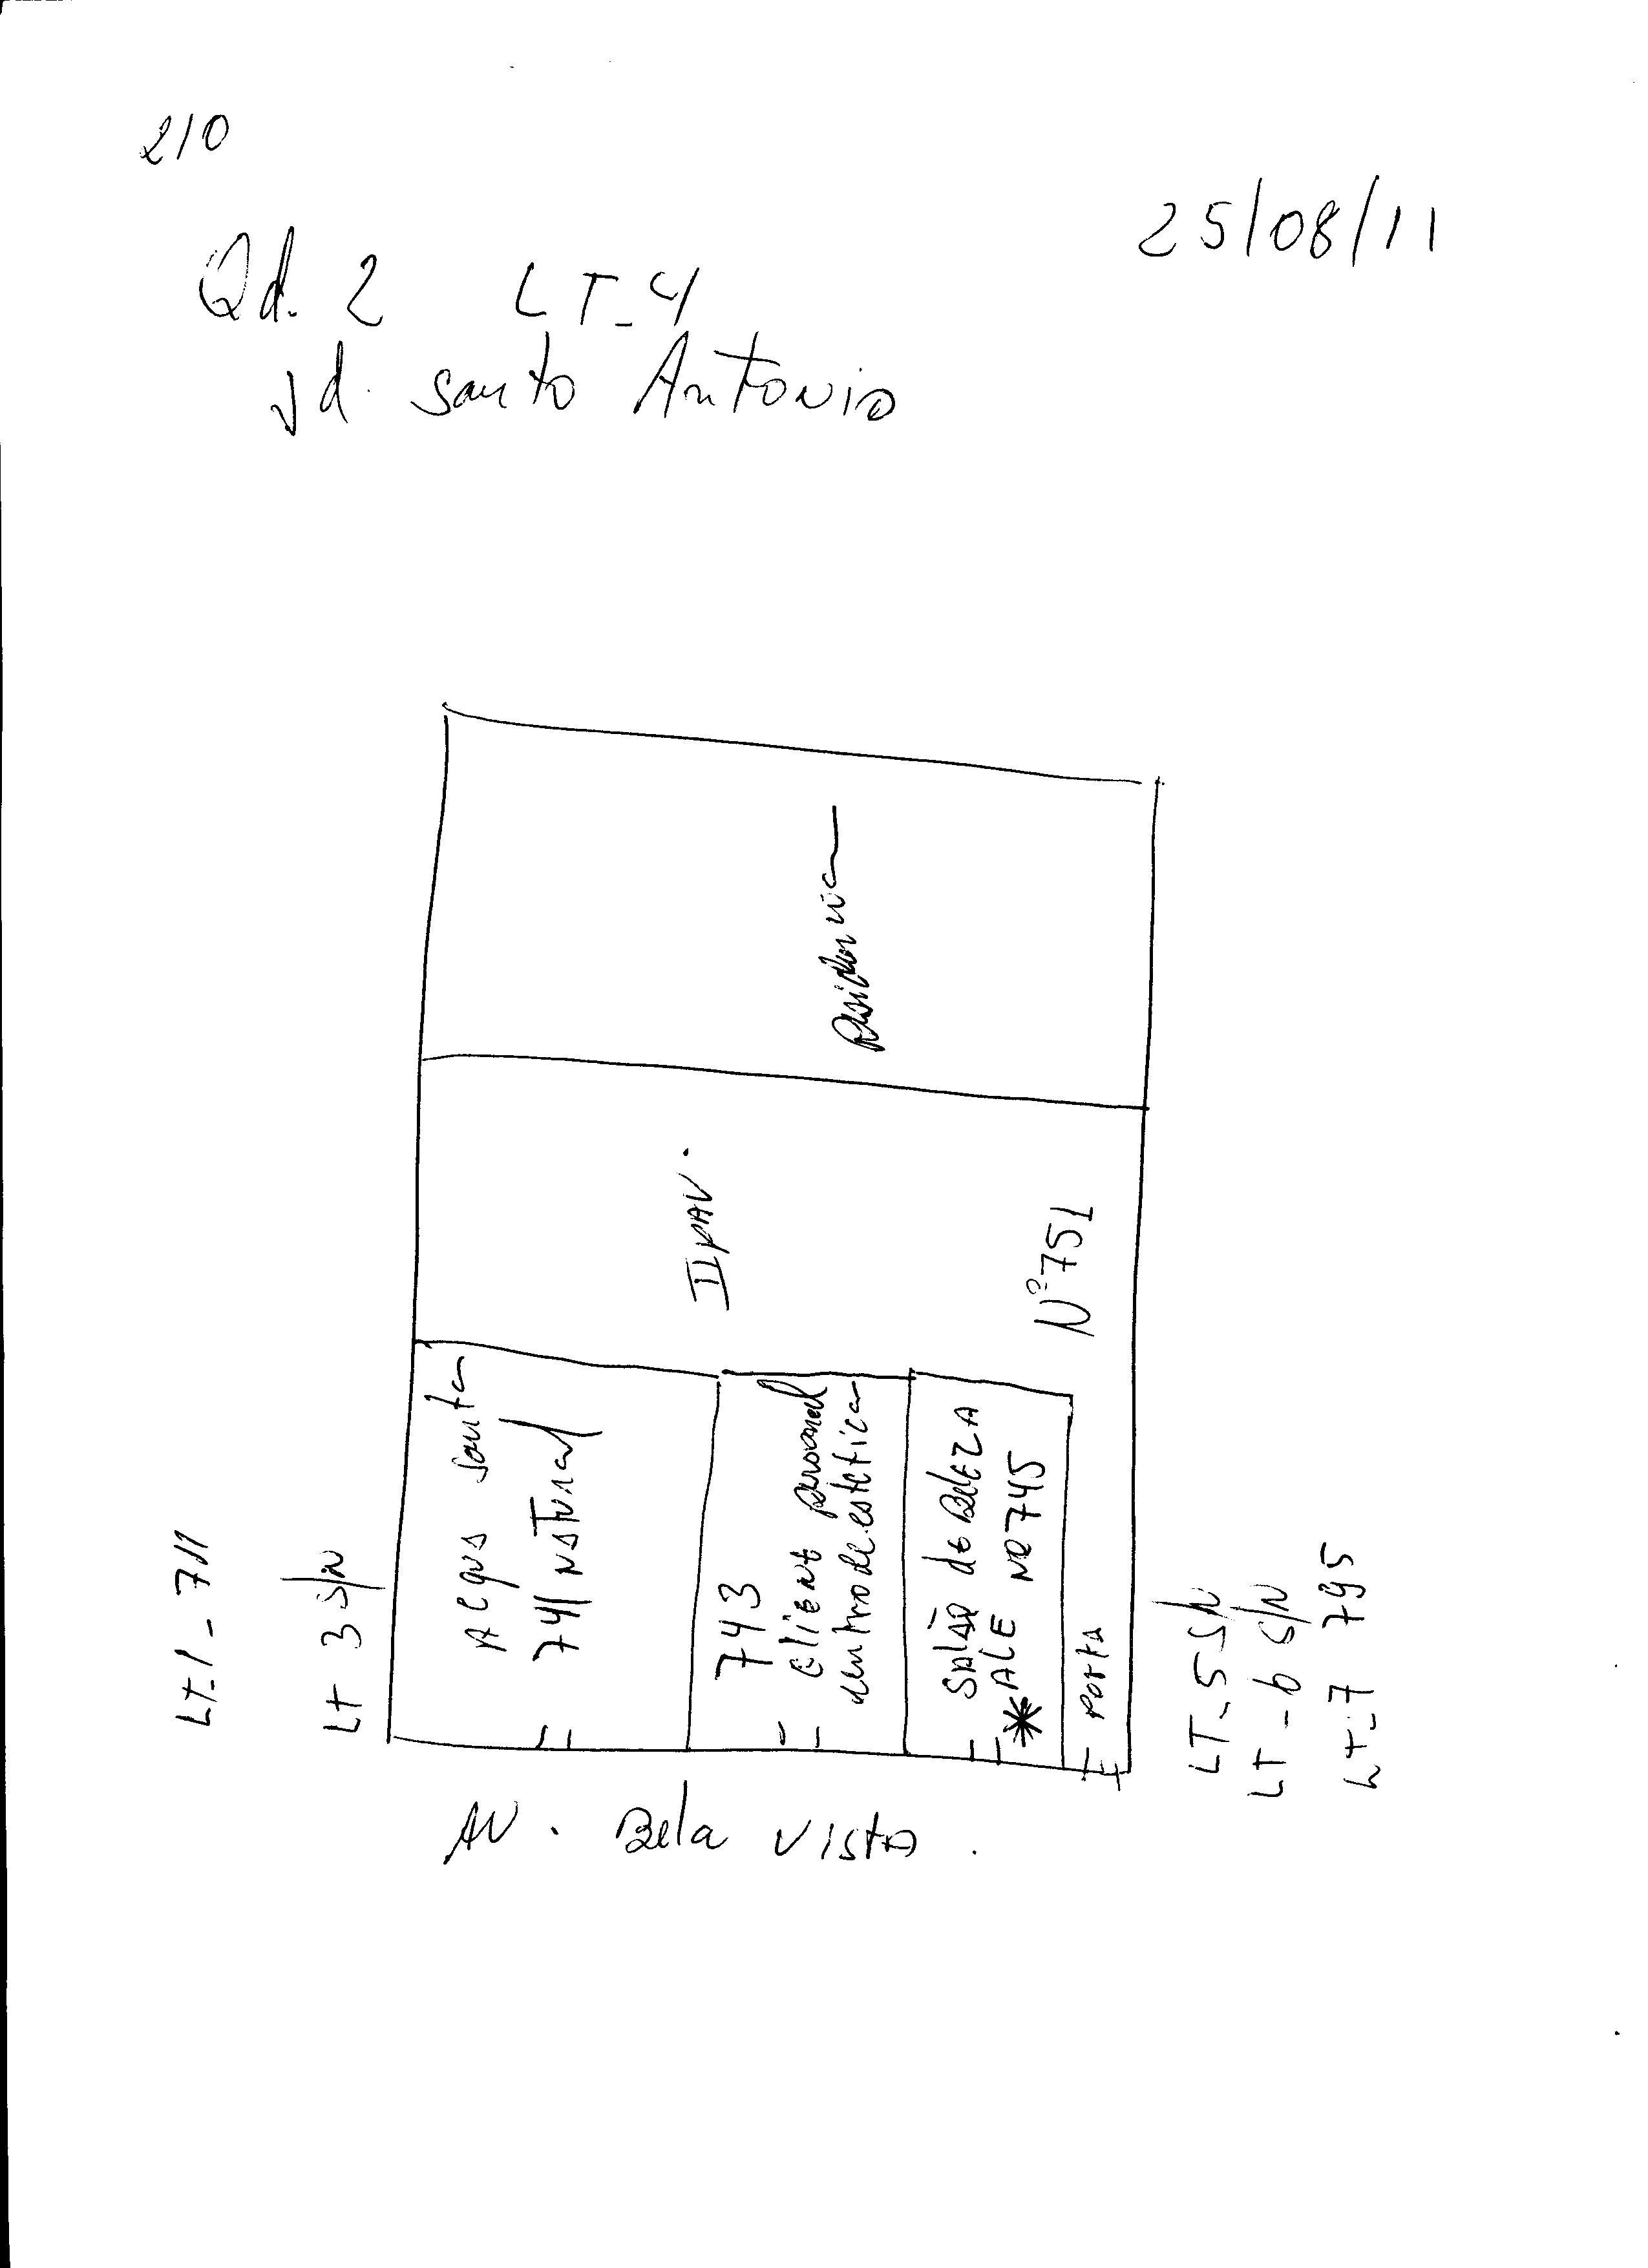 210
25/08/11
Qd. 2 LT-4
Jd. santo Antonio
Residencia
II PAV.
Nº 751
Santa
741 natural
743
Client personal
centro de estetica
SALÃO de BELEZA
*ALE Nº 745
Porta
Lt-1-711
Lt 3 S/N
LT-5 S/N
LT-6 S/N
Lt-7 795
AV. Bela Vista.